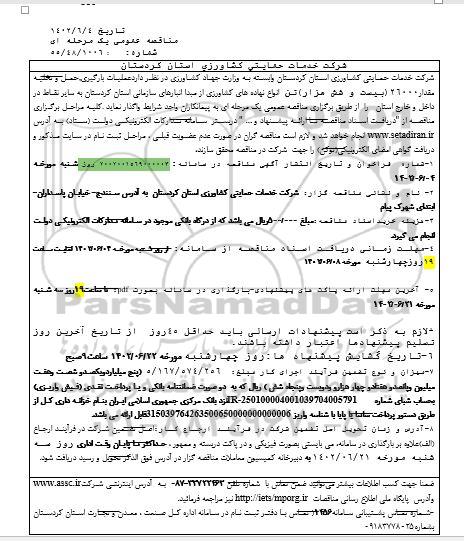 تاریخ ۱۴۰۲/۶/۴
مناقصه عمومی یک مرحله ای
شماره: ۵۵/۴۸/۱۰۰۶
شرکت خدمات حمایتی کشاورزی استان کردستان
شرکت خدمات حمایتی کشاورزی استان کردستان وابسته به وزارت جهاد کشاورزی در نظر دارد عملیات بارگیری، حمل و تخلیه
مقدار ۲۶۰۰۰ (بیست و شش هزار) تن انواع نهاده های کشاورزی از مبدا انبارهای سازمانی استان کردستان به سایر نقاط در
داخل و خارج استان را از طریق برگزاری مناقصه عمومی یک مرحله ای به پیمانکاران واجد شرایط واگذار نماید. کلیه مراحل برگزاری
مناقصه از دریافت اسناد مناقصه تا ارائه پیشنهاد و... در بستر سامانه تدارکات الکترونیکی دولت (ستاد) به آدرس
www.setadiran.ir انجام خواهد شد و لازم است مناقصه گران در صورت عدم عضویت قبلی، مراحل ثبت نام در سایت مذکور و
دریافت گواهی امضای الکترونیکی (توکن) را جهت شرکت در مناقصه محقق سازند.
۱-شماره فراخوان و تاریخ انتشار آگهی مناقصه در سامانه: ۲۰۰۲۰۰۱۵۶۹۰۰۰۰۰۳ روز شنبه مورخه
۱۴۰۲-۶-۰۴
۲- نام و نشانی مناقصه گزار: شرکت خدمات حمایتی کشاورزی استان کردستان به آدرس سنندج- خیابان پاسداران-
ابتدای شهرک پیام
۳-هزینه خرید اسناد مناقصه: مبلغ ریال می باشد که از درگاه بانکی موجود در سامانه تدارکات الکترونیکی دولت
انجام می گیرد.
۴-مهلت زمانی دریافت اسناد مناقصه از سامانه: از روز شنبه مورخه ۱۴۰۲/۰۶/۰۴ لغایت ساعت
۱۹ روز چهارشنبه مورخه ۱۴۰۲/۰۶/۰۸
۵- آخرین مهلت ارائه پاکت های پیشنهادی-بارگذاری در سامانه بصورت pdf: تا ساعت ۱۹ روز سه شنبه
مورخه ۱۴۰۲-۶/۲۱
-لازم به ذکر است پیشنهادات ارسالی باید حداقل ۴۵ روز از تاریخ آخرین روز
تسلیم پیشنهادها اعتبار داشته باشند.
۶-تاریخ گشایش پیشنهاد ها: روز چهارشنبه مورخه ۱۴۰۲/۰۶/۲۲ ساعت ۹ صبح
۷-میزان و نوع تضمین فرآیند اجرای کار مبلغ: ۵/۱۶۷/۵۷۴/۲۵۶ (پنج میلیارد و یکصد و شصت و هفت
میلیون و پانصد و هفتاد و چهار هزار و دویست و پنجاه و شش) ریال که به دو صورت ضمانتنامه بانکی و یا پرداخت نقدی (فیش واریزی) به
حساب شبای شماره IR-250100004001039704005791 نزد بانک مرکزی جمهوری اسلامی ایران بنام خزانه داری کل از
طریق دستور پرداخت ساتنا یا پایا با شناسه واریز 315039764263500650000000000006 قابل ارائه می باشد.
۸-آدرس و زمان تحویل اصل تضمین شرکت در فرآیند ارجاع کار: اصل تضمین شرکت در فرآیند ارجاع
(الف) علاوه بر بارگذاری در سامانه، می بایستی بصورت فیزیکی و در پاکت دربسته و ممهور، حداکثر تا پایان وقت اداری روز سه
شنبه مورخه ۱۴۰۲/۰۶/۲۱ به دبیرخانه کمیسیون معاملات مناقصه گزار در آدرس فوق الذکر تحویل و رسید دریافت شود.
ضمنا جهت کسب اطلاعات بیشتر می توانید ضمن تماس با شماره تلفن ۳۳۷۲۲۴۶۳-۰۸۷ به آدرس اینترنتی شرکت www.assc.ir
وآدرس پایگاه ملی اطلاع رسانی مناقصات http://iets/mporg.ir نیز مراجعه فرمائید.
-شماره تماس پشتیبانی سامانه ۱۴۵۶ / تماس با دفتر ثبت نام در سامانه اداره کل صنعت، معدن و تجارت استان کردستان
بشماره ۰۹۱۸۳۷۷۸۰۲۵